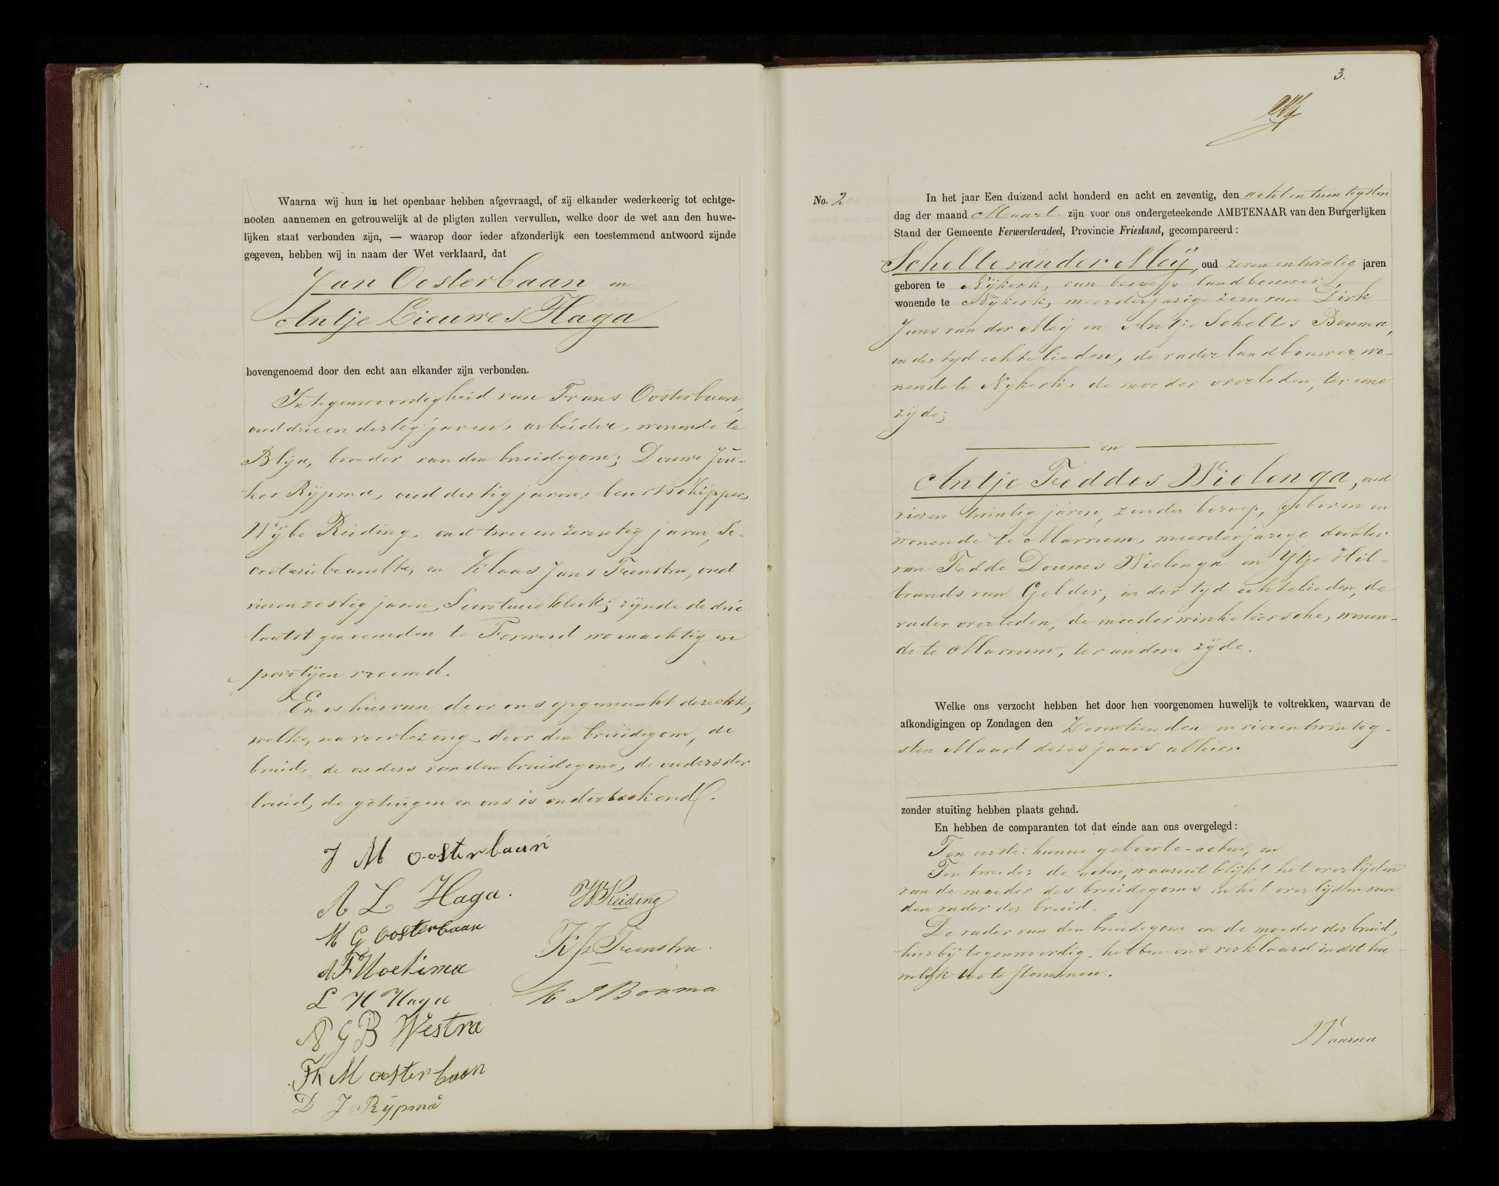 Waarna wij hun in het openbaar hebben afgevraagd, of zij elkander wederkeerig tot echtge-
nooten aannemen en getrouwelijk al de pligten zullen vervullen, welke door de wet aan den huwe-
lijken staat verbonden zijn, — waarop door ieder afzonderlijk een toestemmend antwoord zijnde
gegeven, hebben wij in naam der Wet verklaard, dat
Jan Oosterbaan en
Antje Lieuwes Haga
bovengenoemd door den echt aan elkander zijn verbonden.
In tegenwoordigheid van Frans Oosterbaan,
oud drie en dertig jaren, arbeider, wonende te
Blija, broeder van den bruidegom; Douwe Jou-
kes Rijpma, oud dertig jaren, beurtschipper,
Wijbe Reiding, oud twee en zeventig jaren, Se-
cretariebeambte, en Klaas Jans Feenstra, oud
vier en zestig jaren, Secretarieklerk; zijnde de drie
laatst genoemden te Ferwerd woonachtig en
partijen vreemd.
En is hiervan door ons opgemaakt deze akte,
welke, na voorlezing, door den bruidegom, de
bruid, de ouders van den bruidegom, de ouders der
bruid, de getuigen en ons is onderteekend.
J M Oosterbaan
A L Haga.
M G Oosterbaan
WReiding
K Js Feenstra.
A F Hoekema
L H Haga
K J Bouma
A G B Westra
Fs M Oosterbaan
D J Rijpma
3.
No. 2
In het jaar Een duizend acht honderd en acht en zeventig, den acht en twintigsten
dag der maand Maart zijn voor ons ondergeteekende AMBTENAAR van den Burgerlijken
Stand der Gemeente Ferwerderadeel, Provincie Friesland, gecompareerd:
Schelte van der Meij, oud zeven en twintig jaren
geboren te Nijkerk, van beroep landbouwer,
wonende te Nijkerk, meerderjarige zoon van Dirk
Jans van der Meij en Antje Scheltes Bouma,
in der tijd echtelieden, de vader landbouwer wo-
nende te Nijkerk, de moeder overleden, ter eene
zijde;
en
Antje Feddes Wielenga, oud
vier en twintig jaren, zonder beroep, geboren en
wonende te Marrum, meerderjarige dochter
van Fedde Douwes Wielenga en Ytje Hil-
brands van Gelder, in der tijd echtelieden, de
vader overleden, de moeder winkeliersche, wonen-
de te Marrum, ter andere zijde.
Welke ons verzocht hebben het door hen voorgenomen huwelijk te voltrekken, waarvan de
afkondigingen op Zondagen den Zeventienden en vier en twintig-
sten Maart dezes jaars alhier
zonder stuiting hebben plaats gehad.
En hebben de comparanten tot dat einde aan ons overgelegd:
Ten eerste: hunne geboorte-acten, en
Ten tweede: de acten, waaruit blijkt het overlijden
van de moeder des bruidegoms en het overlijden van
den vader der bruid.
De vader van den bruidegom en de moeder der bruid,
hierbij tegenwoordig, hebben ons verklaard in dit hu-
welijk toe te stemmen.
Waarna